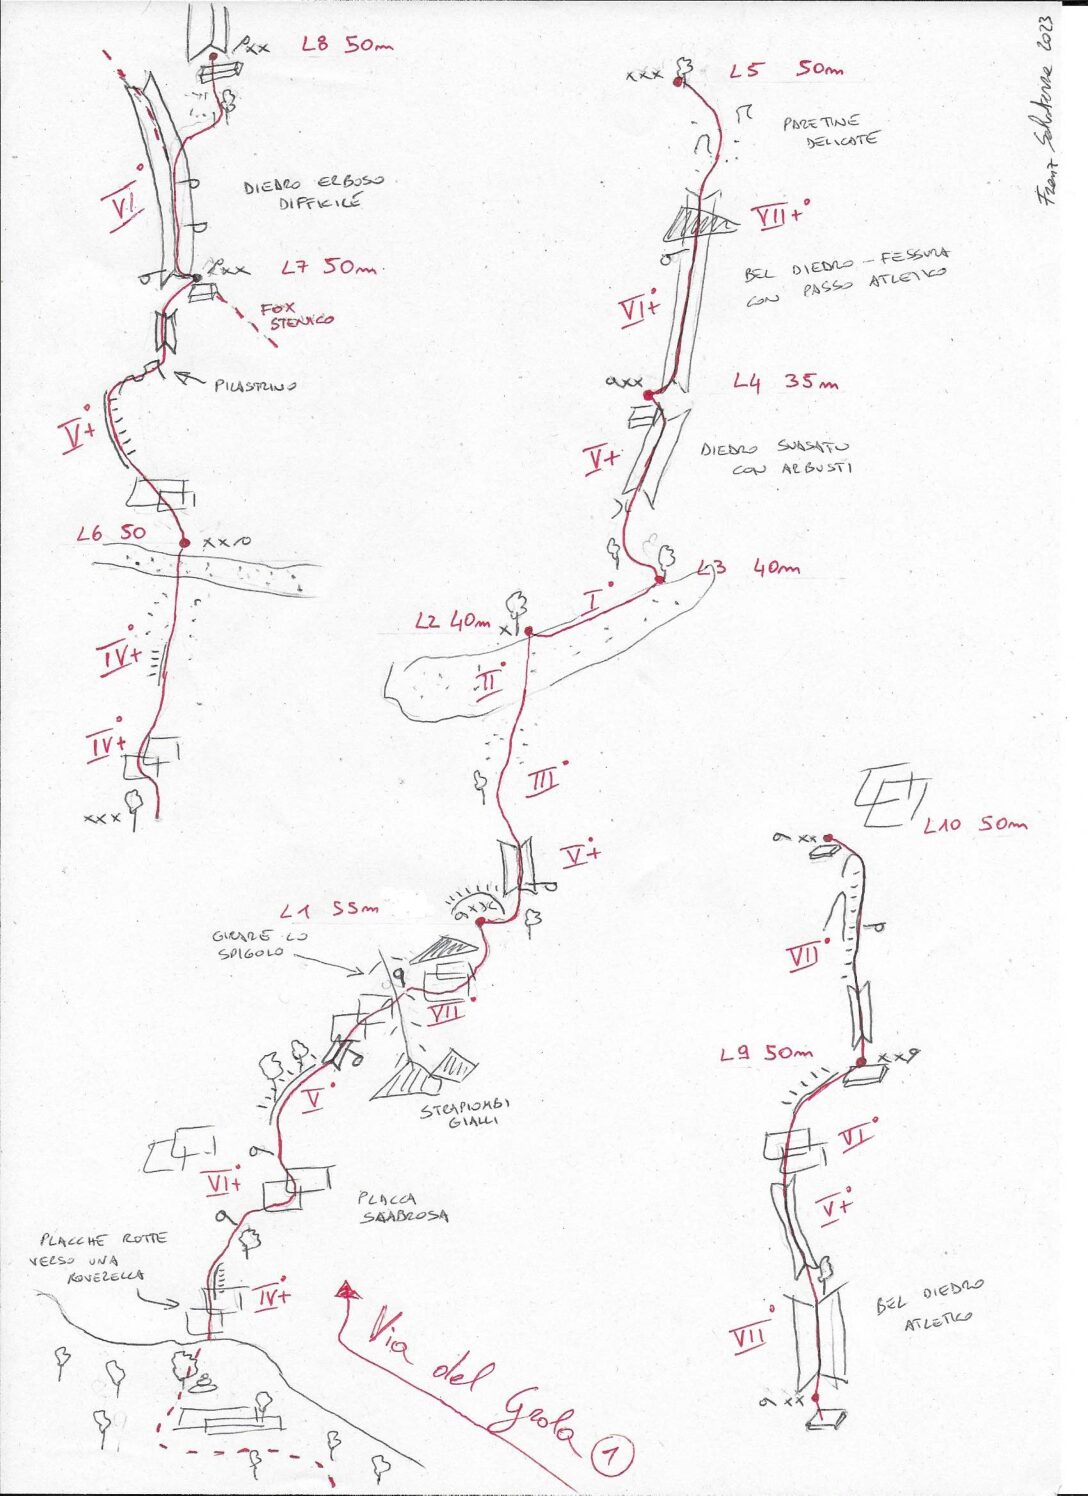 L8 50m
VI°
DIEDRO ERBOSO
DIFFICILE
L7 50m
FOX
STENICO
PILASTRINO
V+°
L6 50
xx
IV+°
IV+°
xxx
xxx
L5 50m
PARETINE
DELICATE
VII+°
BEL DIEDRO - FESSURA
CON PASSO ATLETICO
VI+°
xx
L4 35m
V+°
DIEDRO SVASATO
CON ARBUSTI
L3 40m
I°
L2 40m
x
II°
III°
V+°
L1 55m
GIRARE LO
SPIGOLO
VII°
V°
STRAPIOMBI
GIALLI
VI+°
PLACCA
SCABROSA
PLACCHE ROTTE
VERSO UNA
ROVERELLA
IV+°
Via del Grola 1
L10 50m
xx
VII°
L9 50m
xx
VI°
V+°
BEL DIEDRO
ATLETICO
VII°
xx
2023